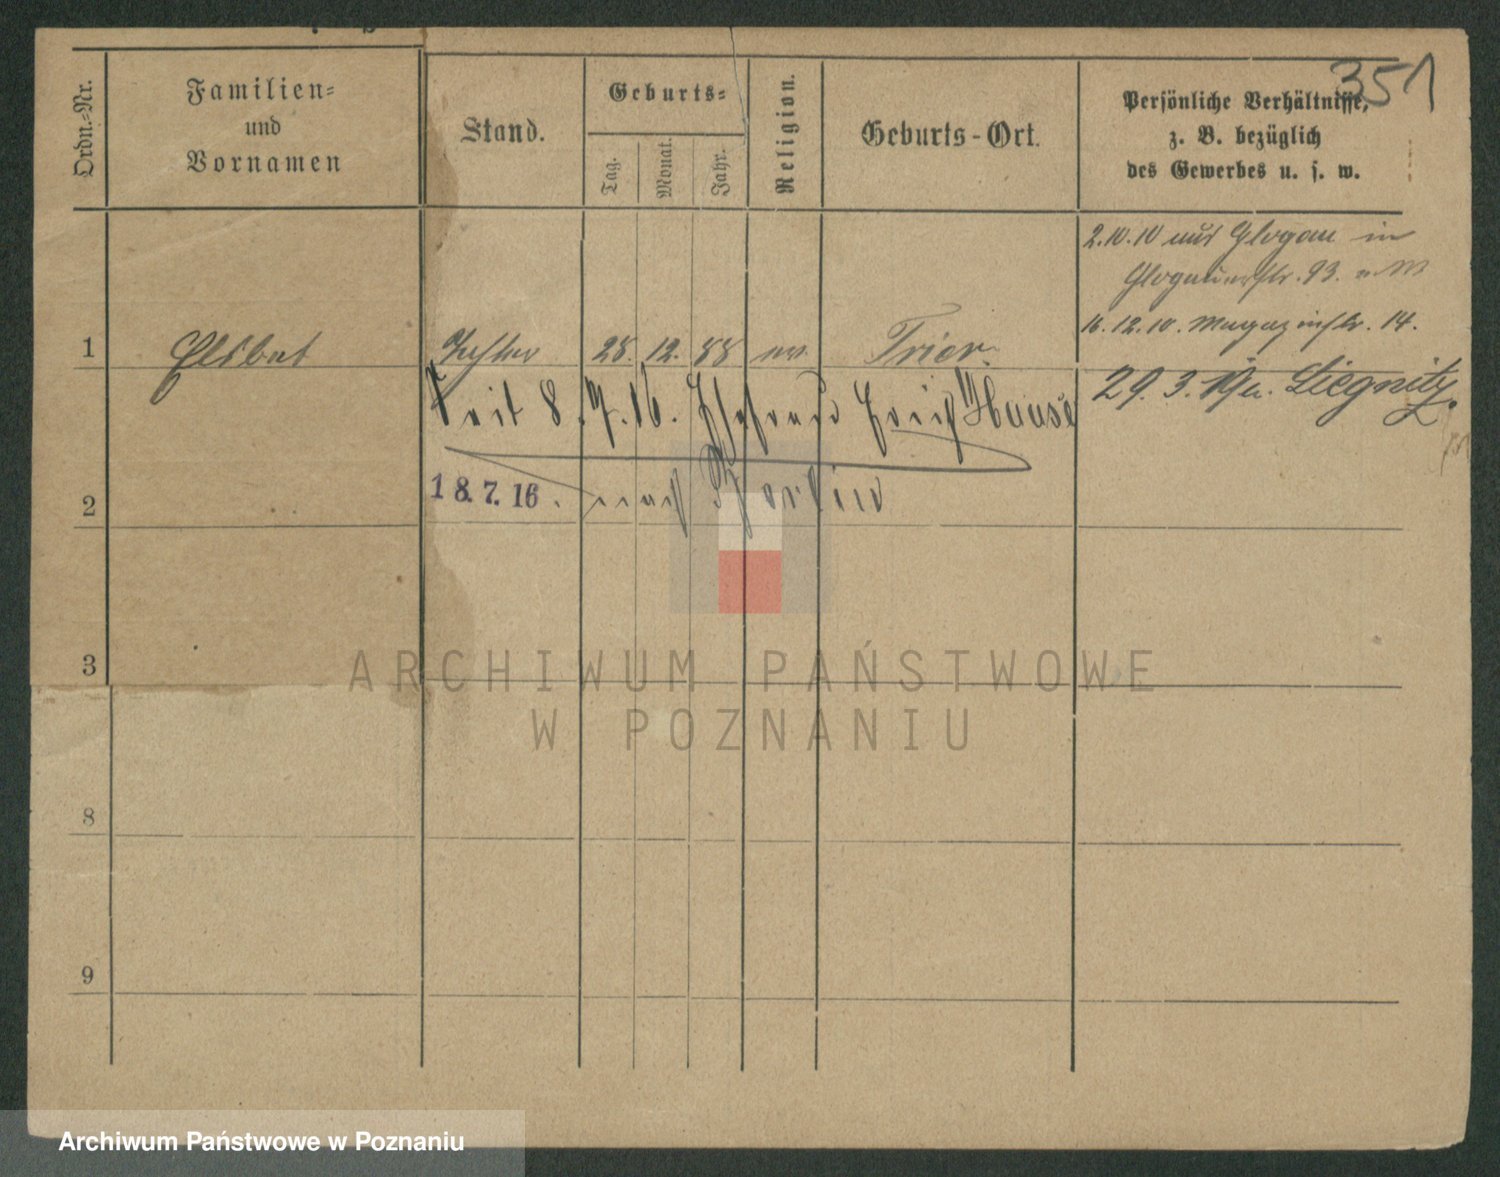 351
Ordn.-Nr.
Familien-
und
Vornamen
Stand.
Geburts-
Tag.
Monat.
Jahr.
Religion.
Geburts-Ort.
Persönliche Verhältnisse,
z. B. bezüglich
des Gewerbes u. s. w.
2.10.10 aus Glogau in
Glogauerstr. 93.
16.12.10. Magazinstr. 14.
1 Elsbet Tochter 28. 12. 88 ev. Trier.
29. 3. 19 n. Liegnitz.
Seit 8.7.16. Ehefrau Erich Haase
18.7.16. nach Berlin
2
3
8
9
ARCHIWUM PAŃSTWOWE
W POZNANIU
Archiwum Państwowe w Poznaniu